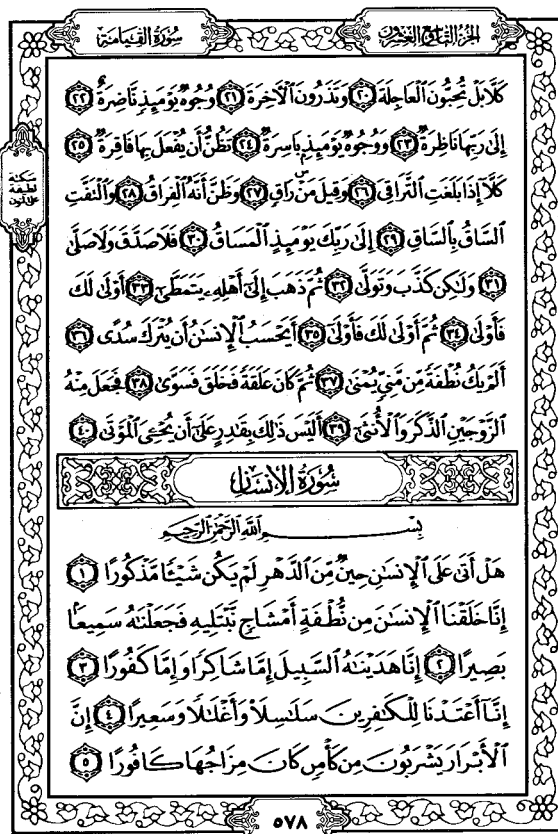 الجزء التاسع والعشرون
سورة القيامة
كَلَّا بَلْ تُحِبُّونَ ٱلْعَاجِلَةَ ٢٠ وَتَذَرُونَ ٱلْآخِرَةَ ٢١ وُجُوهٌ يَوْمَئِذٍ نَّاضِرَةٌ ٢٢
إِلَىٰ رَبِّهَا نَاظِرَةٌ ٢٣ وَوُجُوهٌ يَوْمَئِذٍ بَاسِرَةٌ ٢٤ تَظُنُّ أَن يُفْعَلَ بِهَا فَاقِرَةٌ ٢٥
كَلَّا إِذَا بَلَغَتِ ٱلتَّرَاقِيَ ٢٦ وَقِيلَ مَنْ ۜ رَاقٍ ٢٧ وَظَنَّ أَنَّهُ ٱلْفِرَاقُ ٢٨ وَٱلْتَفَّتِ
ٱلسَّاقُ بِٱلسَّاقِ ٢٩ إِلَىٰ رَبِّكَ يَوْمَئِذٍ ٱلْمَسَاقُ ٣٠ فَلَا صَدَّقَ وَلَا صَلَّىٰ
٣١ وَلَٰكِن كَذَّبَ وَتَوَلَّىٰ ٣٢ ثُمَّ ذَهَبَ إِلَىٰ أَهْلِهِۦ يَتَمَطَّىٰ ٣٣ أَوْلَىٰ لَكَ
فَأَوْلَىٰ ٣٤ ثُمَّ أَوْلَىٰ لَكَ فَأَوْلَىٰ ٣٥ أَيَحْسَبُ ٱلْإِنسَٰنُ أَن يُتْرَكَ سُدًى ٣٦
أَلَمْ يَكُ نُطْفَةً مِّن مَّنِيٍّ يُمْنَىٰ ٣٧ ثُمَّ كَانَ عَلَقَةً فَخَلَقَ فَسَوَّىٰ ٣٨ فَجَعَلَ مِنْهُ
ٱلزَّوْجَيْنِ ٱلذَّكَرَ وَٱلْأُنثَىٰ ٣٩ أَلَيْسَ ذَٰلِكَ بِقَٰدِرٍ عَلَىٰ أَن يُحْـِۧيَ ٱلْمَوْتَىٰ ٤٠
سورة الإنسان
بِسْمِ ٱللَّهِ ٱلرَّحْمَٰنِ ٱلرَّحِيمِ
هَلْ أَتَىٰ عَلَى ٱلْإِنسَٰنِ حِينٌ مِّنَ ٱلدَّهْرِ لَمْ يَكُن شَيْـًٔا مَّذْكُورًا ١
إِنَّا خَلَقْنَا ٱلْإِنسَٰنَ مِن نُّطْفَةٍ أَمْشَاجٍ نَّبْتَلِيهِ فَجَعَلْنَٰهُ سَمِيعًۢا
بَصِيرًا ٢ إِنَّا هَدَيْنَٰهُ ٱلسَّبِيلَ إِمَّا شَاكِرًا وَإِمَّا كَفُورًا ٣
إِنَّآ أَعْتَدْنَا لِلْكَٰفِرِينَ سَلَٰسِلَا۟ وَأَغْلَٰلًا وَسَعِيرًا ٤ إِنَّ
ٱلْأَبْرَارَ يَشْرَبُونَ مِن كَأْسٍ كَانَ مِزَاجُهَا كَافُورًا ٥
٥٧٨
سكتة
لطيفة
على النون